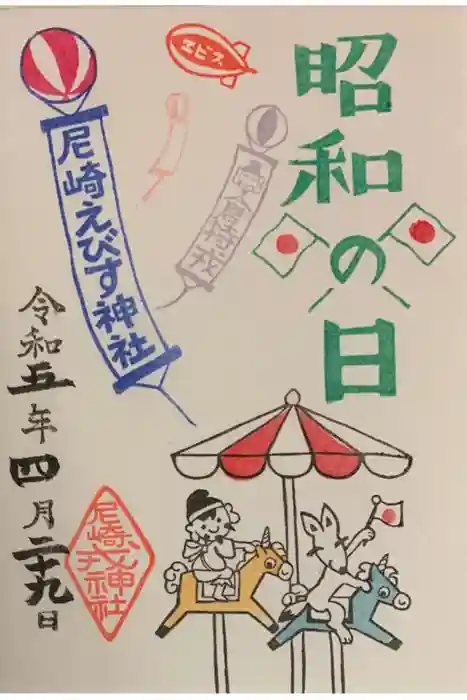 昭和の日
エビス
尼崎えびす神社
令和五年四月二十九日
尼崎
神社